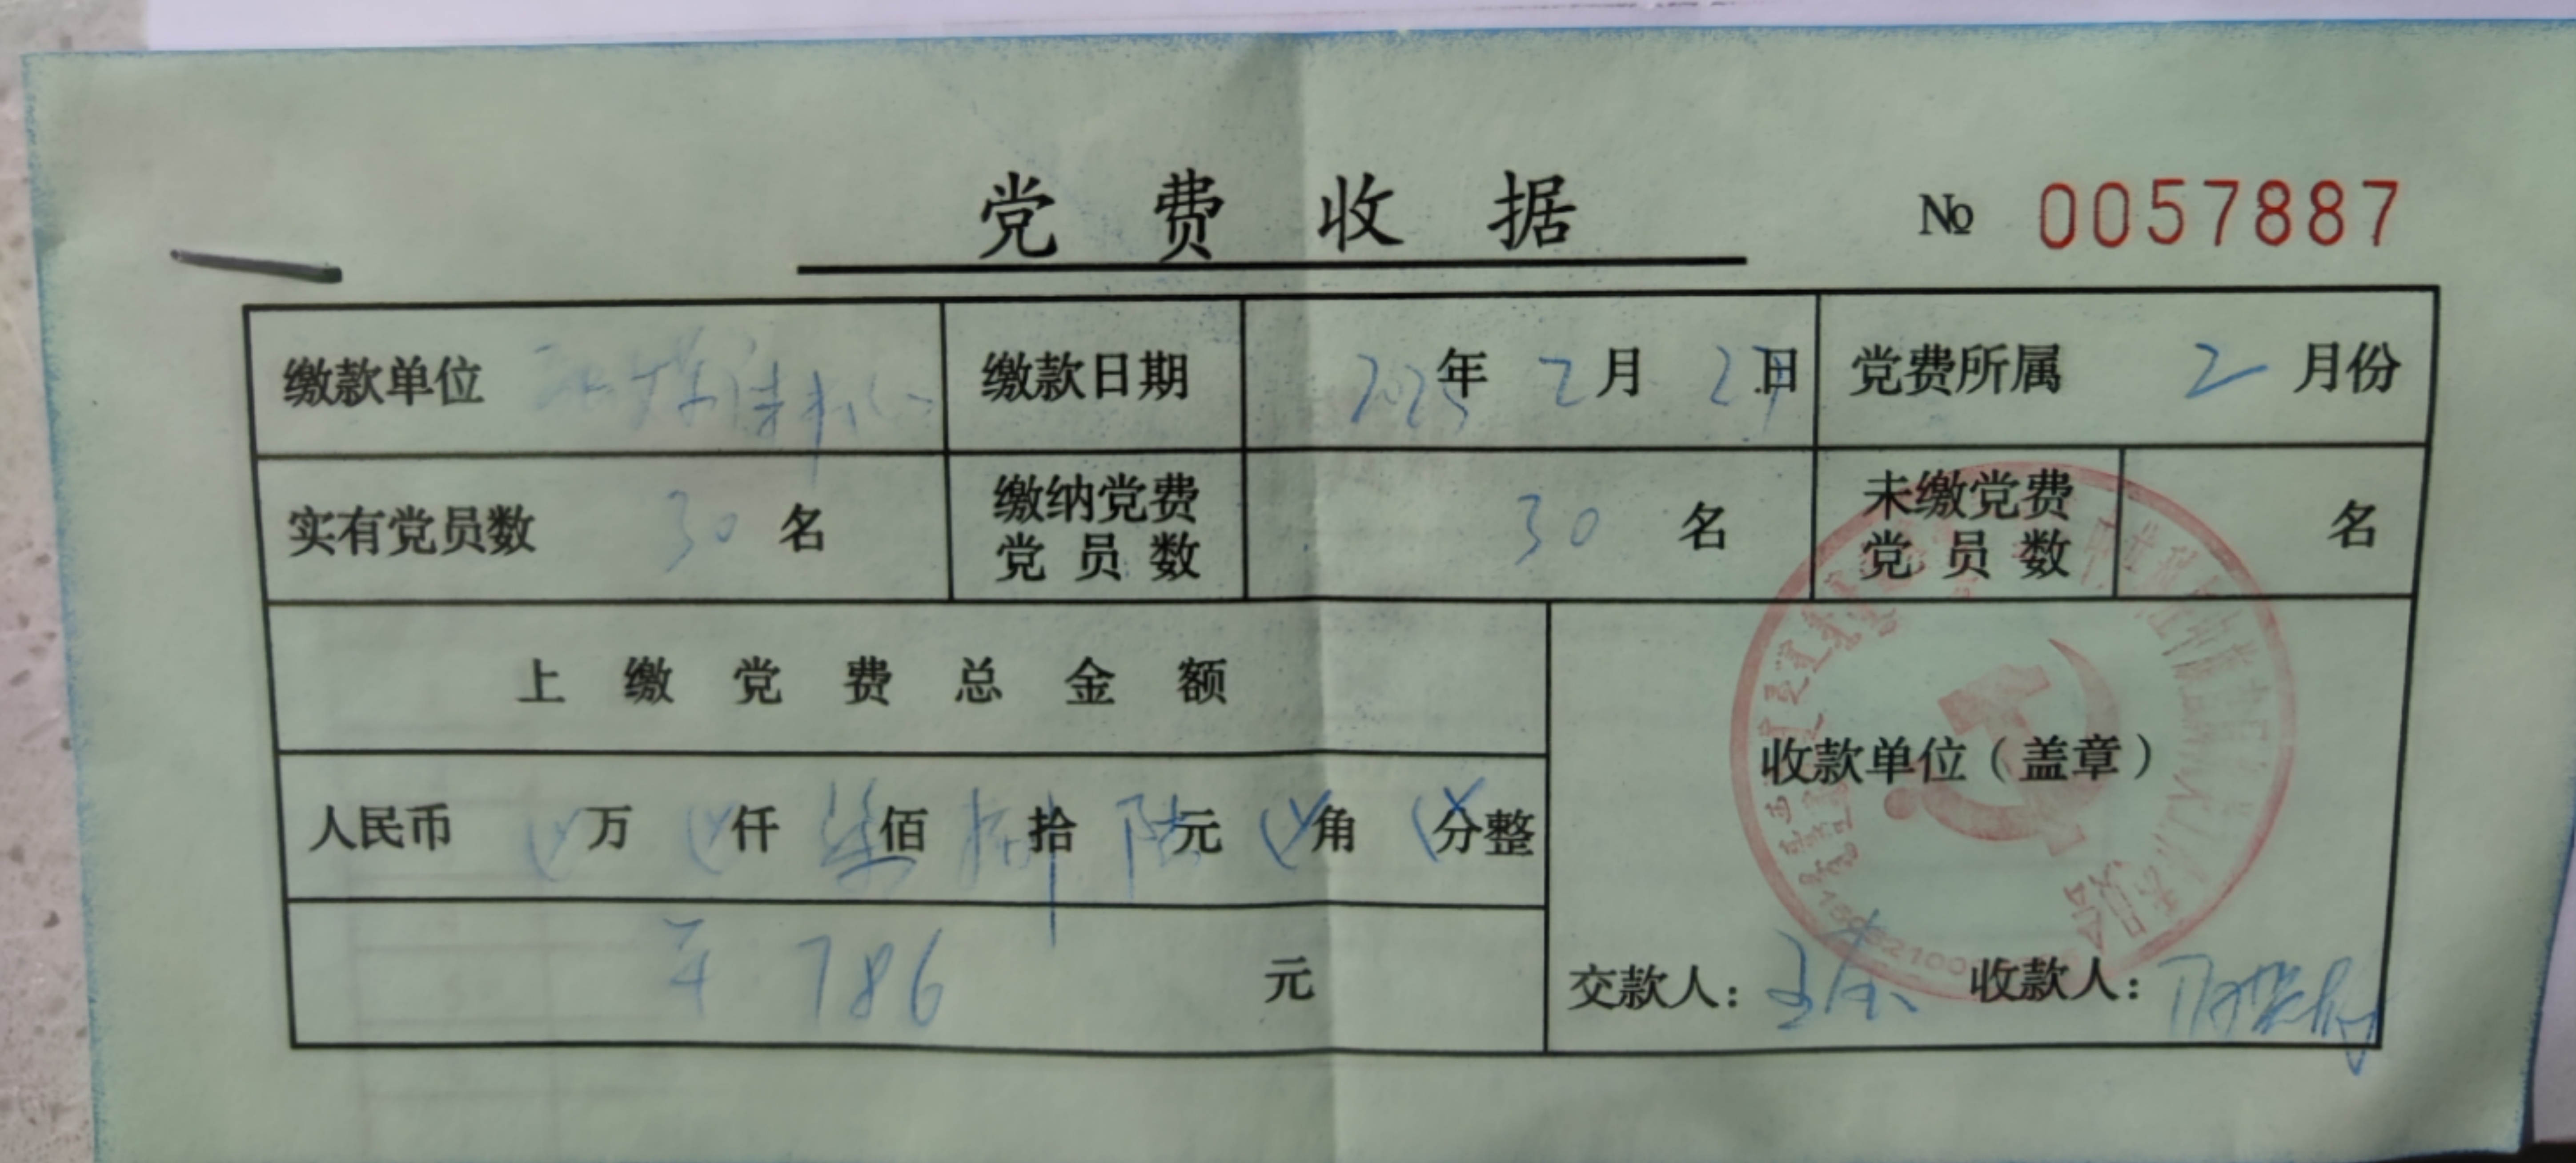 党费收据 № 0057887
缴款单位 缴款日期 2025年2月27日 党费所属 2 月份
实有党员数 30 名 缴纳党费党员数 30 名 未缴党费党员数 名
上缴党费总金额
人民币 万 仟 柒佰 捌拾 陆元 角 分整
¥ 786 元
收款单位（盖章）
交款人： 收款人：